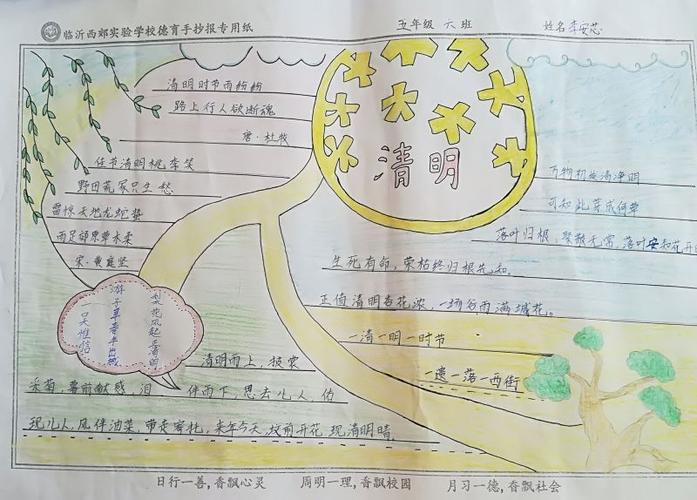 临沂西郊实验学校德育手抄报专用纸 五年级 六班 姓名李安芯
清明时节雨纷纷
路上行人欲断魂
唐·杜牧
佳节清明桃李笑
野田荒冢只生愁
雷惊天地龙蛇蛰
雨足郊原草木柔
宋·黄庭坚
清明
万物初 清净明
可知此芽成何草
落叶归根,聚散无常,落叶安知花开
生死有命,荣枯终归根先知.
正值清明杏花浓,一场谷雨满城花。
一清一明一时节
一 一落一西街
梨花风起正清明
游子寻春半出城
吴惟信
清明雨上,披裳
采菊,墓前献感,泪 伴雨下,思去儿人,仿
现儿人,风伴油菜, 来年今天,坟前开花,现清明晴.
日行一善,香飘心灵 周明一理,香飘校园 月习一德,香飘社会